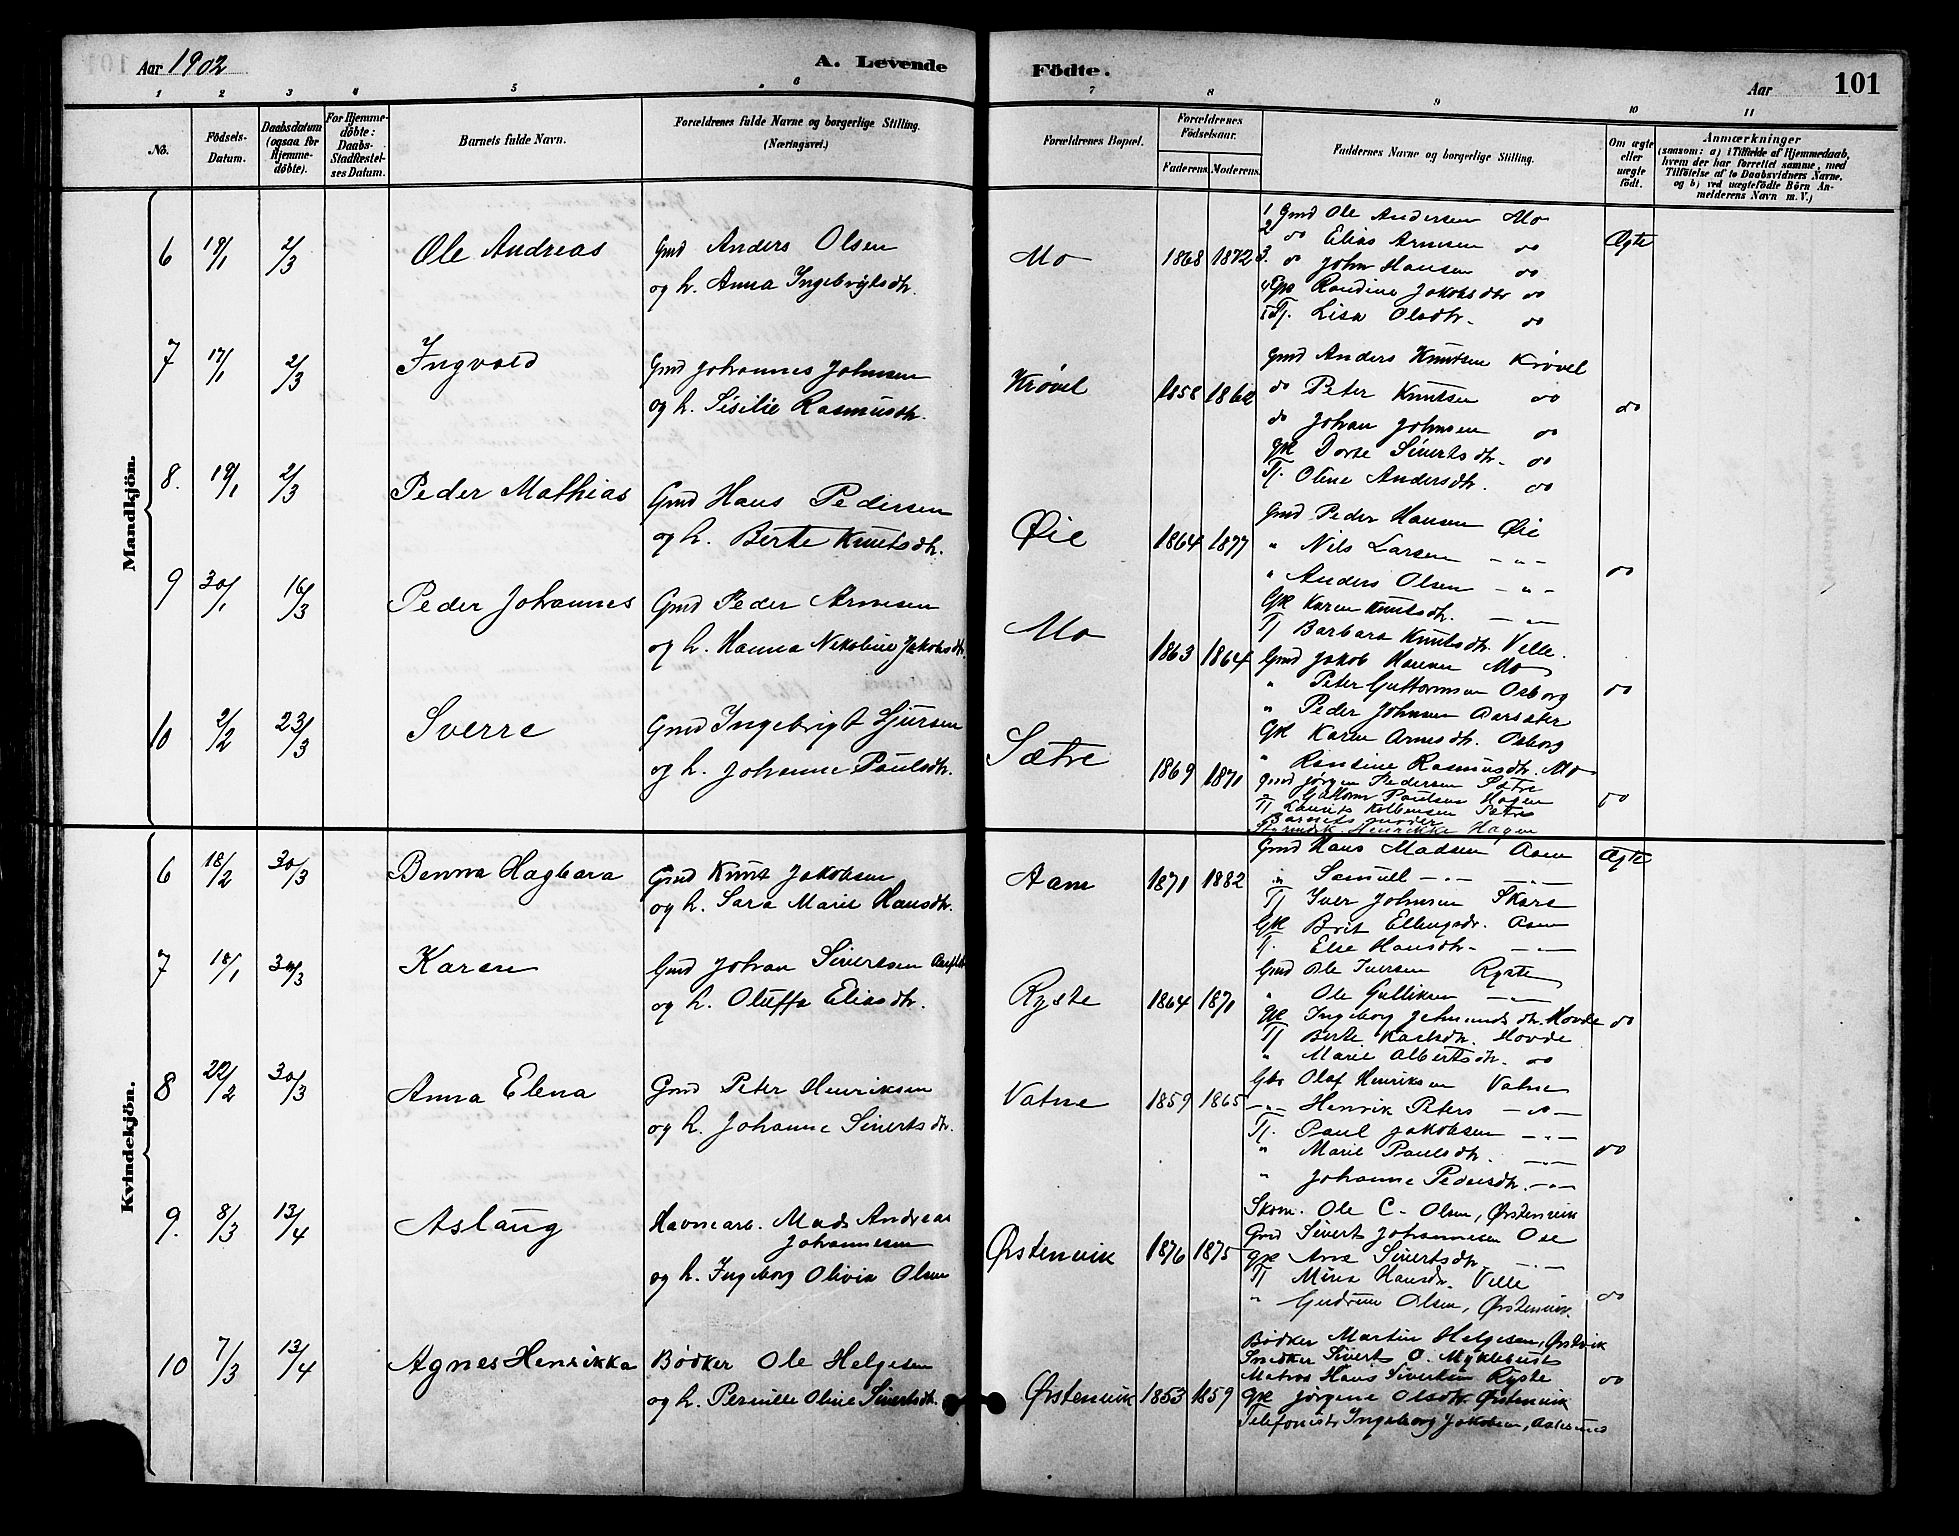 Aar 1902 A. Levende Födte. Aar 101
1 2 3 4 5 6 7 8 9 10 11
No. Födsels-Datum. Daabsdatum (ogsaa for Hjemme-döbte). For Hjemme-döbte: Daabs-Stadfæstel-ses Datum. Barnets fulde Navn. Forældrenes fulde Navne og borgerlige Stilling. (Næringsvei.) Forældrenes Bopæl. Forældrenes Födselsaar. Faderens. Moderens. Faddernes Navne og borgerlige Stilling. Om ægte eller uægte födt. Anmærkninger (saasom: a) i Tilfælde af Hjemmedaab, hvem der har forrettet samme, med Tilföielse af to Daabsvidners Navne, og b) ved uægtefödte Börn An-melderens Navn m. V.)
Mandkjön.
6 19/1 2/3 Ole Andreas Gmd Anders Olsen
og h. Anna Ingebrigtsdtr. Mo 1868 1872
1 Gmd Ole Andersen Mo Ægte
2 do Elias Arnesen do
3. do John Hansen do
4 Gpe Randine Jakobsdtr do
5 Tj. Lisa Olsdtr. do
7 17/1 2/3 Ingvald Gmd Johannes Johnsen
og h. Sisilie Rasmusdtr. Krøvel 1858 1862
Gmd Anders Knutsen Krøvel
do Peter Knutsen do do
do Johan Johnsen do
gpe Dorte Sivertsdtr. do
Tj. Oline Andersdtr. do
8. 19/1 2/3 Peder Mathias Gmd Hans Pedersen
og h. Berte Knutsdtr. Øie 1864 1877
Gmd Peder Hansen Øie
" Nils Larsen - " -
" Anders Olsen - " - do
Gpe Karen Knutsdtr. - " -
Tj Barbara Knutsdtr. Velle.
9 30/1 16/3 Peder Johannes Gmd Peder Arnesen
og h. Hanna Nikoline Jakobsdtr. Mo 1863 1864
Gmd Jakob Hansen Mo
" Peter Guttormsen Osborg do
" Peder Johnsen Aarsæter
Gpe Karen Arnesdtr. Osborg
" Rasmusdtr. Mo
10 2/2 23/3 Sverre Gmd Ingebrigt Sjursen
og h. Johanne Paulsdtr. Sætre 1869 1871
Gmd Jørgen Pedersen Sætre
" Guttorm Paulsen Hagen do
Tj Laurits Kolbensen Sætre
Barnets moder
Henrikke Hagen
Kvindekjön.
6 18/2 30/3 Benna Hagbara Gmd Knut Jakobsen
og h. Sara Marie Hansdtr. Aam 1871 1882
Gmd Hans Madsen Aam Ægte
" Samuel - " - - " -
Tj Iver Johnsen Skare
Gpe Brit Ellingsdr. Aam
Tj. Else Hansdtr. - " -
7 18/1 30/3 Karen Gmd Johan Sivertsen
og h. Oluffa Eliasdtr. Ryste 1864 1871
Gmd Ole Iversen Ryste
" Ole Gulliksen - " -
Gpe Ingeborg Jetmundsdtr. Hovde do
Tj Berte Karlsdtr. Hovde
" Marie Albertsdtr. do
8 22/2 30/3 Anna Elena Gmd Peter Henriksen
og h. Johanne Sivertsdtr. Vatne 1859 1865
Gbr Olaf Henriksen Vatne
- " - Henrik Peters - " -
Tj. Paul Jakobsen - " -
" Marie Paulsdtr. - " - do
" Johanne Pedersdtr. - " -
9. 8/3 13/4 Aslaug Havnearb. Mads Andreas
Johannesen
og h. Ingeborg Olivia Olsen Ørstenvik 1876 1875
Skom. Ole C. Olsen, Ørstenvik
Gmd Sivert Johannesen Ose
gpe Ane Sivertsdtr. - " -
Tj Mina Hansdtr. Velle
" Gudrun Olsen, Ørstenvik. do
10 7/3 13/4 Agnes Henrikka Bødker Ole Helgesen
og h. Pernille Oline Sivertsdtr. Ørstenvik 1853 1859
Bødker Martin Helgesen, Ørstvik
Snedker Sivert O. Myklebust
Matros Hans Sivertsen Ryste do
gpe Jørgine Olsdtr. Ørstenvik
Telefonist Ingeborg Jakobsen, Aalesund